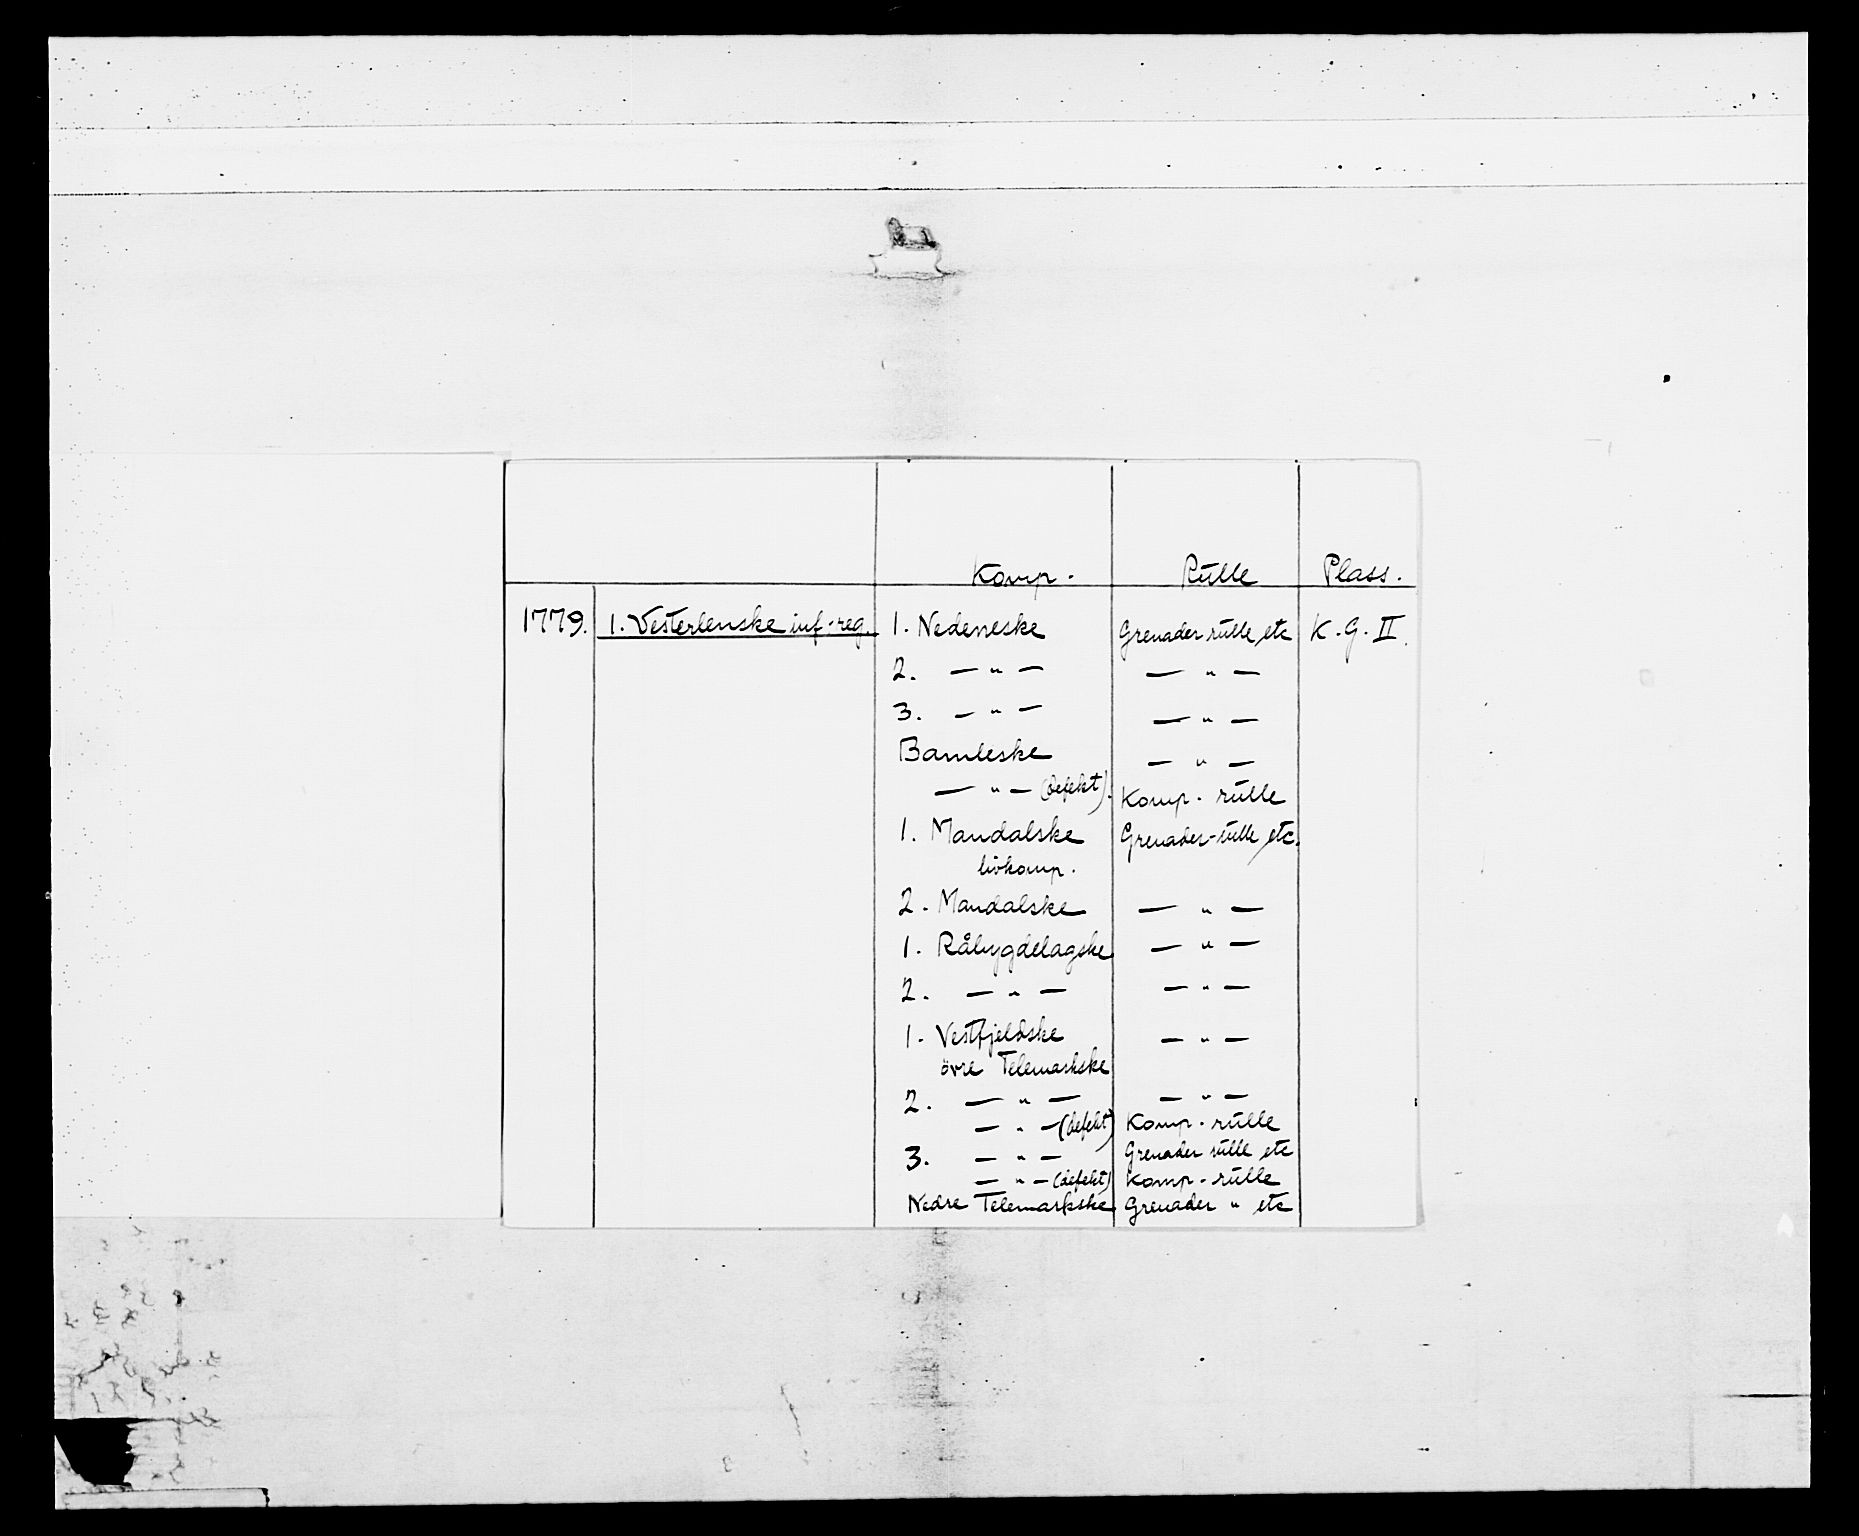 Komp. Rulle Plass.
1779. 1. Vesterlenske inf.-reg. 1. Nedeneske Grenader rulle etc K.G. II.
2. — " — — " —
3. — " — — " —
Bamleske — " —
— " — (defekt). Komp. rulle
1. Mandalske Grenader-rulle etc.
livkomp.
2. Mandalske — " —
1. Råbygdelagske — " —
2. — " — — " —
1. Vestfjeldske — " —
övre Telemarkske
2. — " — — " —
— " — (defekt) Komp. rulle
3. — " — Grenader rulle etc
— " — (defekt) Komp. rulle
Nedre Telemarkske Grenader " etc